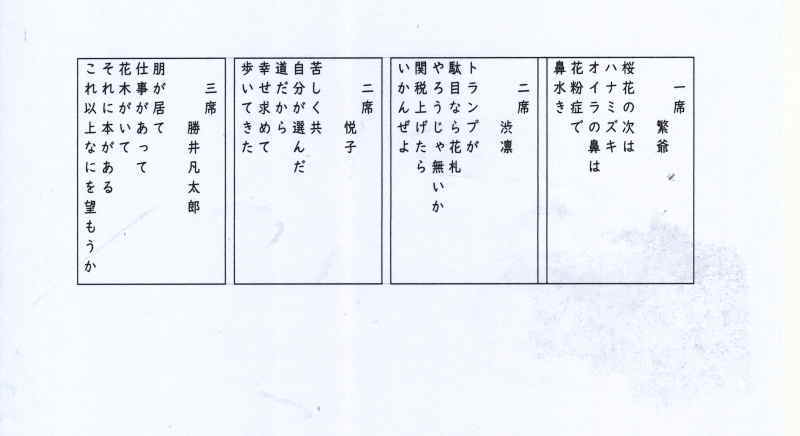 一席
繁爺
桜花の次は
ハナミズキ
オイラの鼻は
花粉症で
鼻水き
二席
渋凛
トランプが
駄目なら花札
やろうじゃ無いか
関税上げたら
いかんぜよ
二席
悦子
苦しく共
自分が選んだ
道だから
幸せ求めて
歩いてきた
三席
勝井凡太郎
朋が居て
仕事があって
花木がいて
それに本がある
これ以上なにを望もうか